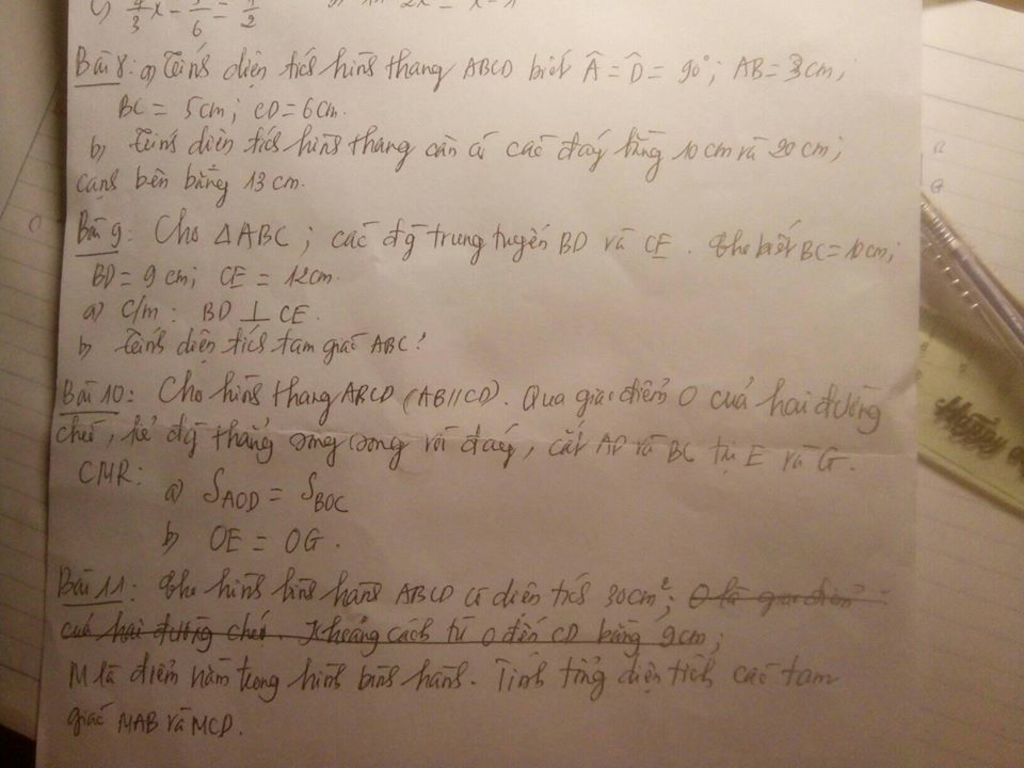 c) 4/3 x - 5/6 = 1/2
Bài 8: a) Tính diện tích hình thang ABCD biết Â = D̂ = 90°; AB = 3cm;
BC = 5cm; CD = 6cm.
b) Tính diện tích hình thang cân có các đáy bằng 10cm và 20cm;
cạnh bên bằng 13cm.
Bài 9: Cho ΔABC; các đg trung tuyến BD và CE. Cho biết BC = 10cm;
BD = 9cm; CE = 12cm.
a) C/m: BD ⊥ CE.
b) Tính diện tích tam giác ABC?
Bài 10: Cho hình thang ABCD (AB//CD). Qua giao điểm O của hai đường
chéo, kẻ đg thẳng song song với đáy, cắt AD và BC tại E và G.
CMR:
a) S_AOD = S_BOC
b) OE = OG.
Bài 11: Cho hình bình hành ABCD có diện tích 30cm²; O là giao điểm
của hai đường chéo. Khoảng cách từ O đến CD bằng 9cm;
M là điểm nằm trong hình bình hành. Tính tổng diện tích các tam
giác MAB và MCD.